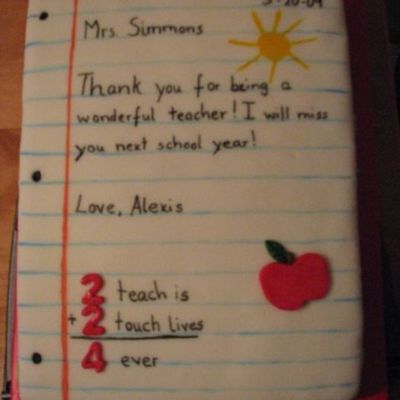 5-20-09
Mrs. Simmons
Thank you for being a
wonderful teacher! I will miss
you next school year!
Love, Alexis
2 teach is
+ 2 touch lives
4 ever